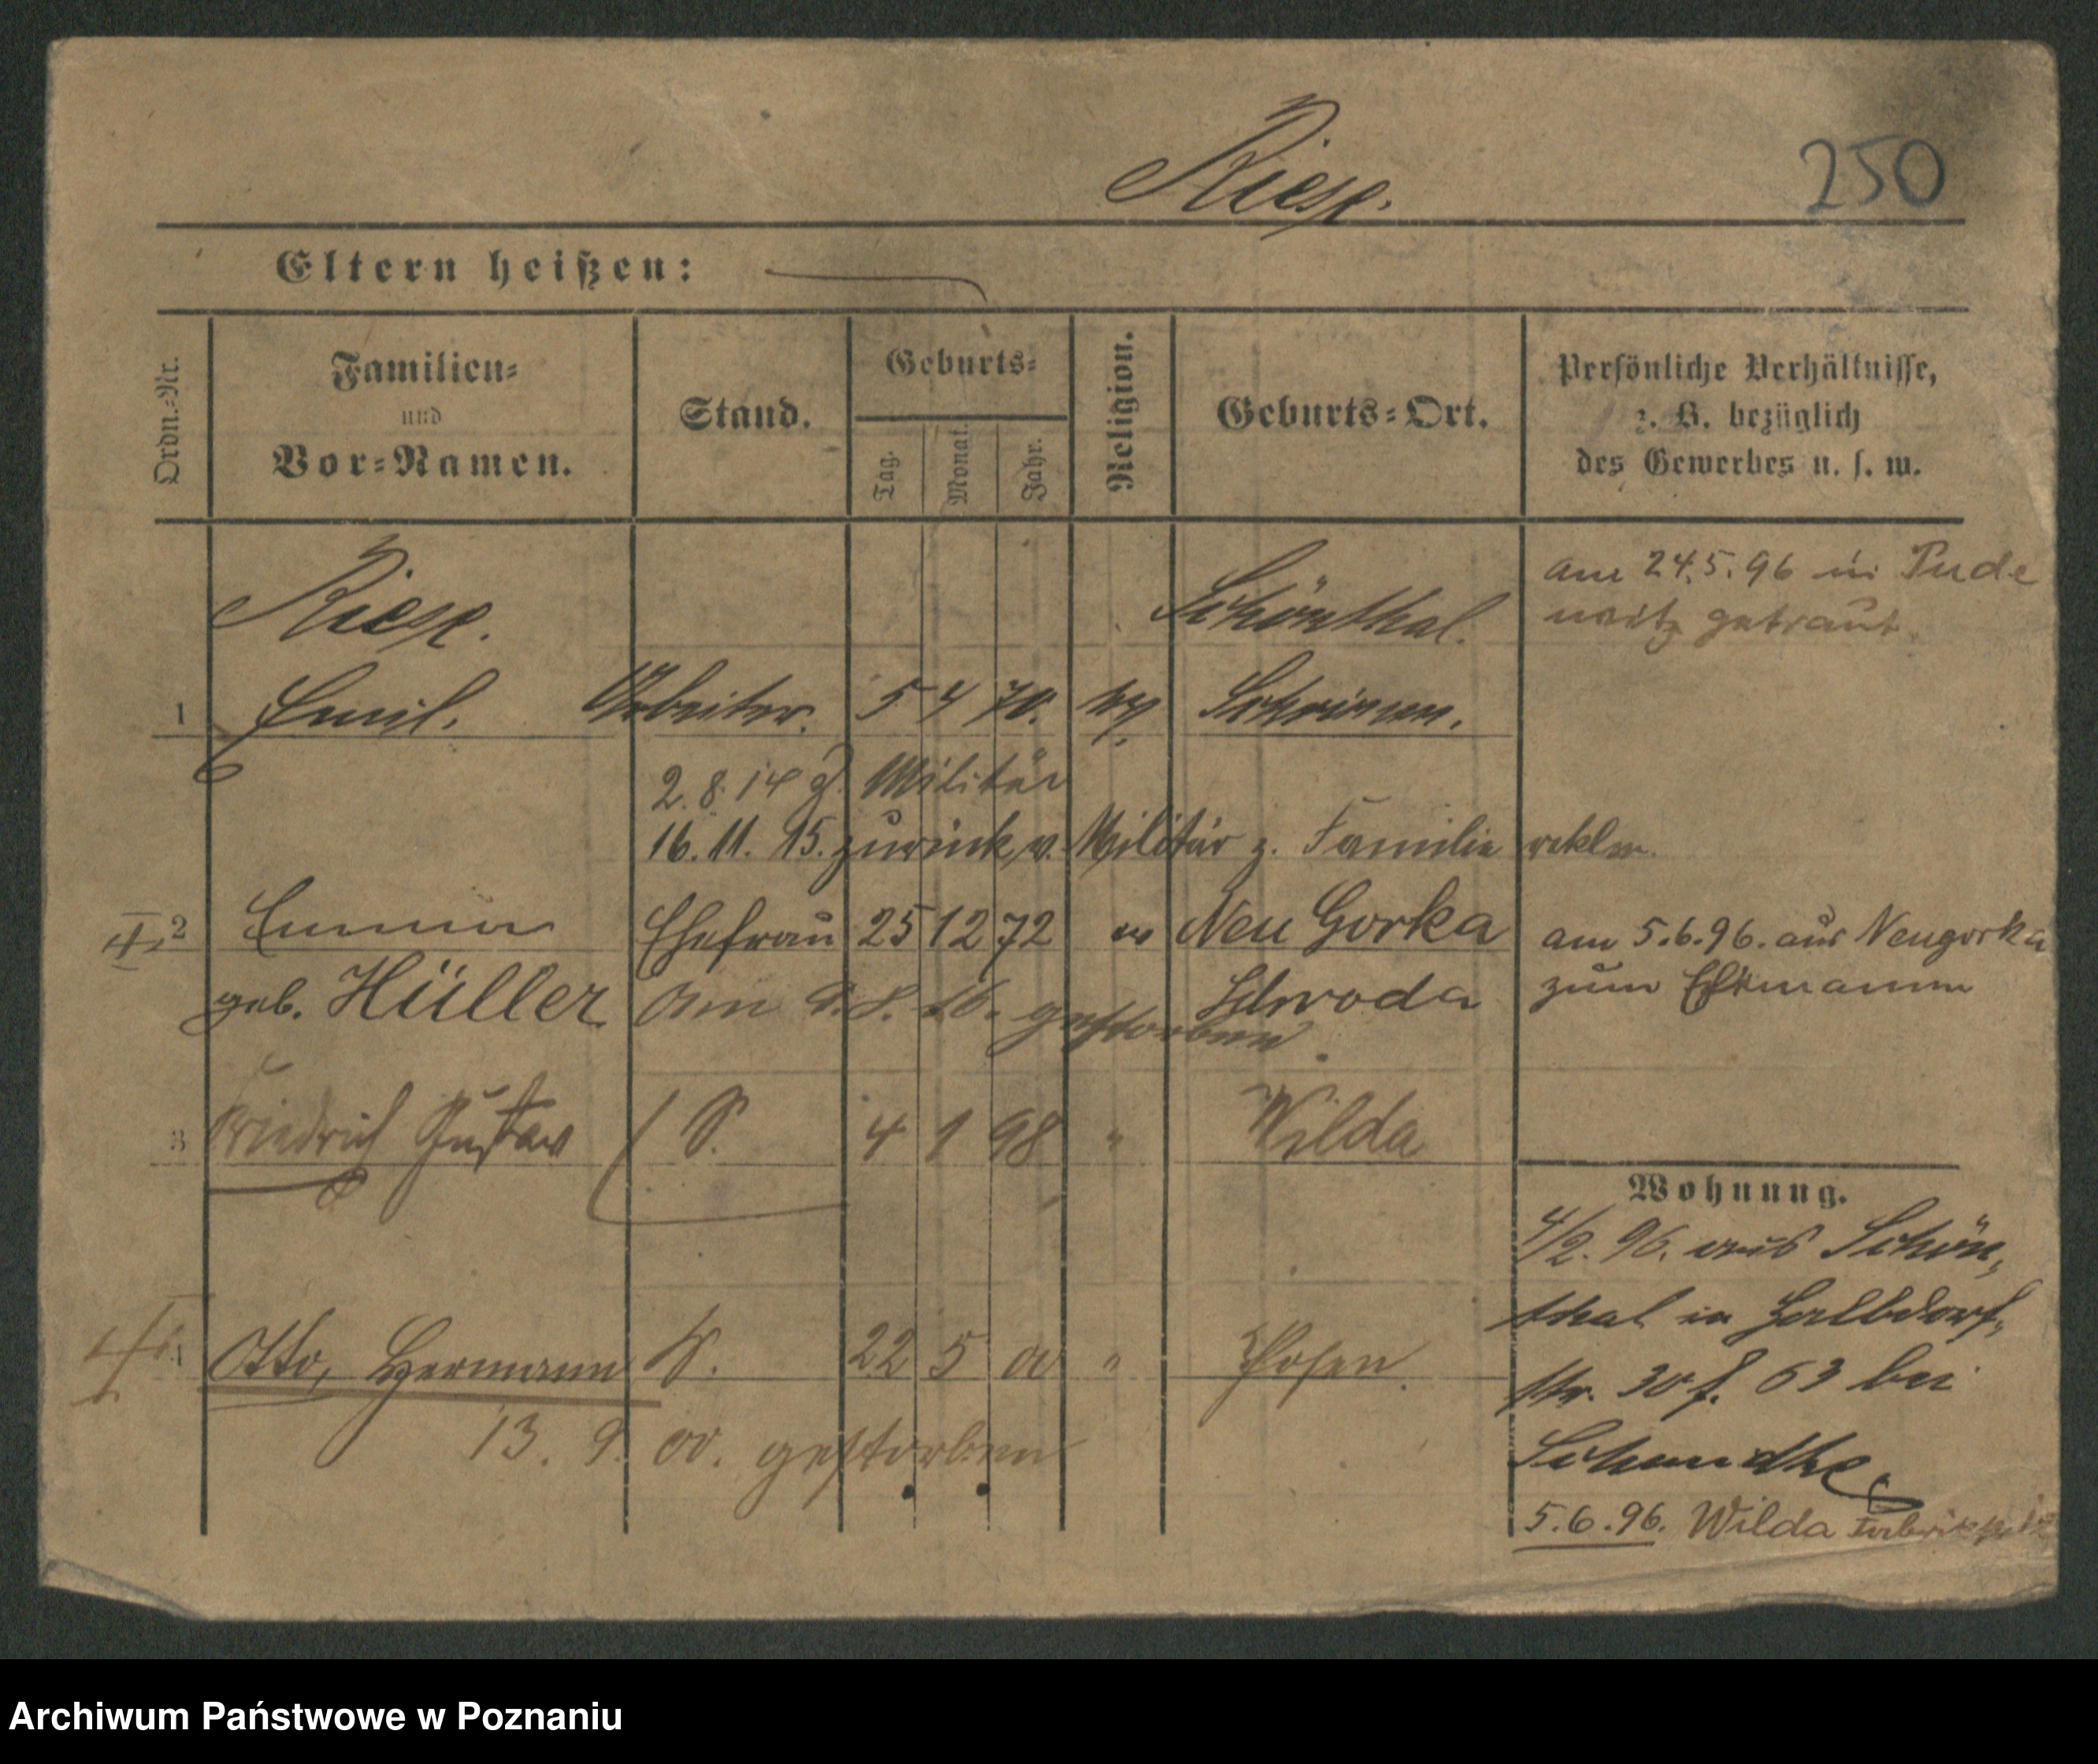 Riese.
250
Eltern heißen:
Ordn.-Nr.
Familien-
und
Vor-Namen.
Stand.
Geburts-
Tag.
Monat.
Jahr.
Religion.
Geburts-Ort.
Persönliche Verhältnisse,
z. B. bezüglich
des Gewerbes u. s. w.
Riese. Schönthal.
am 24.5.96 in Pude
witz getraut.
1 Emil. Arbeiter. 5 4 70. Schrimm.
2.8.14 z. Militär
16.11.15. zurück v. Militär z. Familie reklm.
2 Emma Ehefrau 25 12 72 " Neu Gorka
geb. Hüller Schroda
am 5.6.96. aus Neugorka
zum Ehemann
am 8. gestorben.
3 Friedrich Gustav S. 4 1 98 " Wilda
Wohnung.
4/2. 96. aus Schön-
thal in Halbdorf-
str. 30 f. 63 bei
5.6.96. Wilda
4 Otto, Hermann S. 22 5 00 " Posen.
13. 9. 00. gestorben
Archiwum Państwowe w Poznaniu